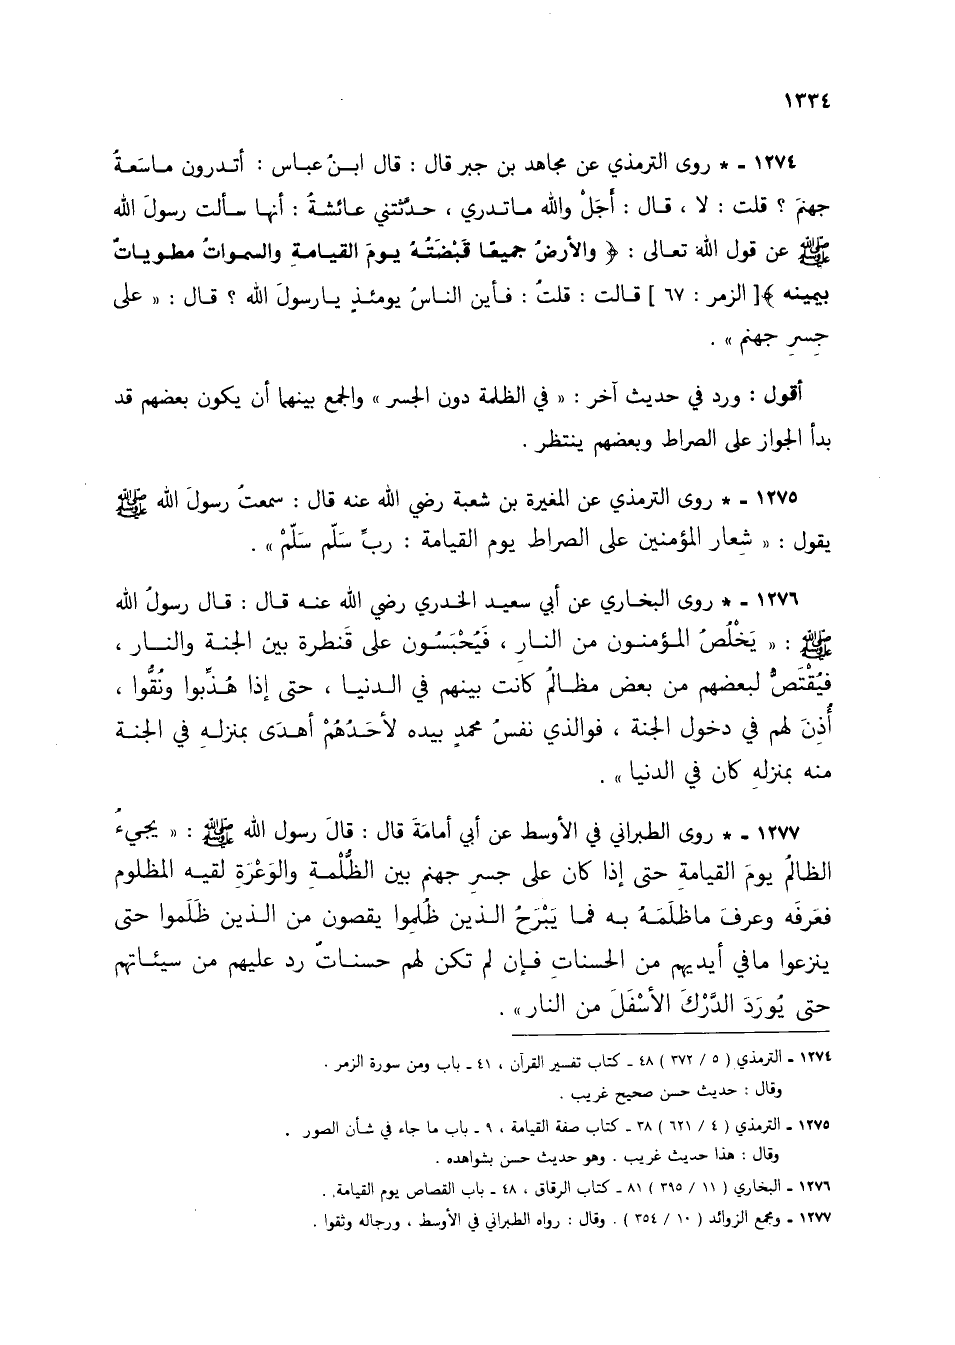 ١٣٣٤
١٢٧٤ - * روى الترمذي عن مجاهد بن جبر قال : قال ابنُ عباس : أتدرون ماسَعةُ
جهنمَ ؟ قلت : لا ، قال : أَجَلْ والله ماتدري ، حدَّثتني عائشةُ : أنها سألت رسولَ الله
ﷺ عن قول الله تعالى : ﴿ والأرضُ جميعًا قَبْضَتُهُ يومَ القيامةِ والسمواتُ مطوياتٌ
بيمينه ﴾[ الزمر : ٦٧ ] قالت : قلتُ : فأين الناسُ يومئذٍ يارسولَ الله ؟ قال : « على
جِسرِ جهنم » .
أقول : ورد في حديث آخر : « في الظلمة دون الجسر » والجمع بينهما أن يكون بعضهم قد
بدأ الجواز على الصراط وبعضهم ينتظر .
١٢٧٥ - * روى الترمذي عن المغيرة بن شعبة رضي الله عنه قال : سمعتُ رسولَ الله ﷺ
يقول : « شِعار المؤمنين على الصراط يوم القيامة : ربِّ سَلِّم سَلِّمْ » .
١٢٧٦ - * روى البخاري عن أبي سعيد الخدري رضي الله عنه قال : قال رسولُ الله
ﷺ : « يَخْلُصُ المؤمنون من النارِ ، فَيُحْبَسُون على قَنطرة بين الجنة والنار ،
فيُقْتَصُّ لبعضهم من بعض مظالمُ كانت بينهم في الدنيا ، حتى إذا هُذِّبوا ونُقُّوا ،
أُذِنَ لهم في دخول الجنة ، فوالذي نفسُ محمدٍ بيده لأحَدُهُمْ أهدَى بمنزلهِ في الجنة
منه بمنزلهِ كان في الدنيا » .
١٢٧٧ - * روى الطبراني في الأوسط عن أبي أمامَةَ قال : قالَ رسول الله ﷺ : « يجيءُ
الظالمُ يومَ القيامةِ حتى إذا كان على جسرِ جهنم بين الظُّلْمةِ والوَعْرَةِ لقيه المظلوم
فعَرفَه وعرفَ ماظلَمَهُ به فما يَبْرَحُ الذين ظُلِموا يقصون من الذين ظَلَموا حتى
ينزعوا مافي أيديهم من الحسناتِ فإن لم تكن لهم حسناتٌ رد عليهم من سيئاتهم
حتى يُورَدَ الدَّرْكَ الأسْفَلَ من النار » .
١٢٧٤ - الترمذي ( ٥ / ٣٧٢ ) ٤٨ - كتاب تفسير القرآن ، ٤١ - باب ومن سورة الزمر .
وقال : حديث حسن صحيح غريب .
١٢٧٥ - الترمذي ( ٤ / ٦٢١ ) ٣٨ - كتاب صفة القيامة ، ٩ - باب ما جاء في شأن الصور .
وقال : هذا حديث غريب . وهو حديث حسن بشواهده .
١٢٧٦ - البخاري ( ١١ / ٣٩٥ ) ٨١ - كتاب الرقاق ، ٤٨ - باب القصاص يوم القيامة .
١٢٧٧ - ومجمع الزوائد ( ١٠ / ٣٥٤ ) . وقال : رواه الطبراني في الأوسط ، ورجاله وثقوا .